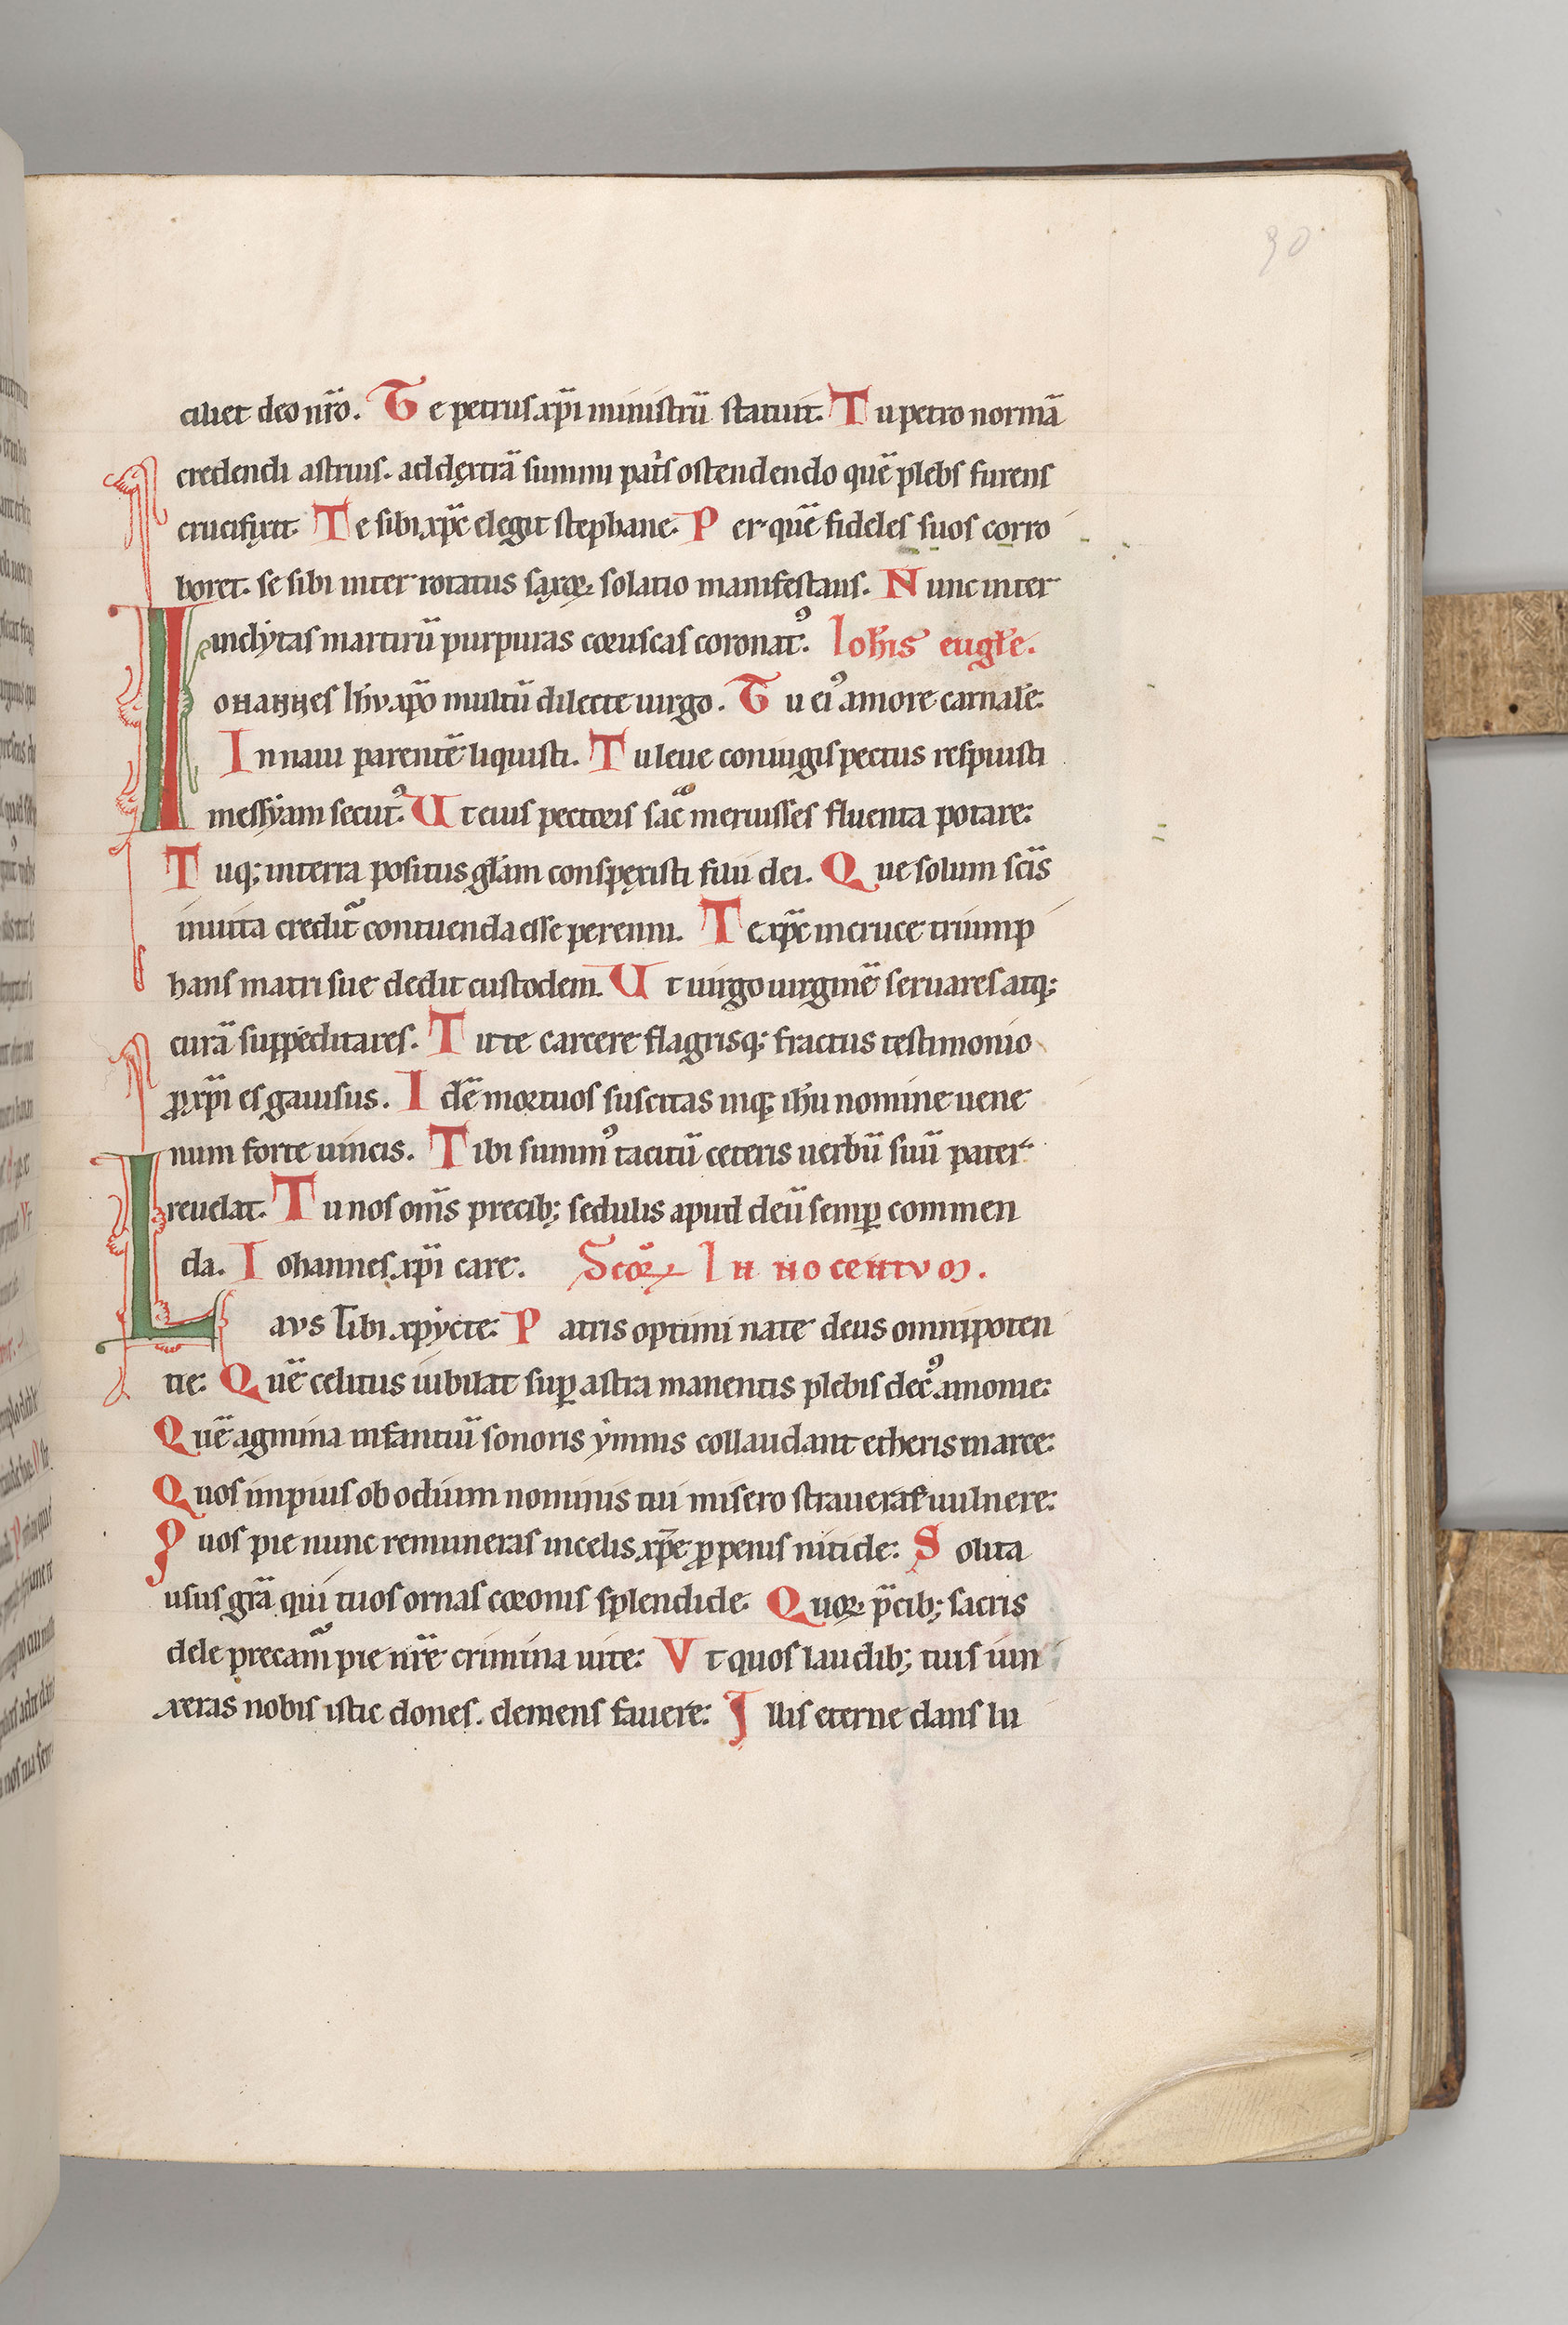 90
ciliet deo nr̄o. Te petrus xp̄i ministrū statuit. Tu petro normā
credendi astruis. ad dęxtrā summi patⁱs ostendendo quē plebs furens
crucifixit. Te sibi xp̄c elegit stephane. Per quē fideles suos corro
boret. se sibi inter rotatus saxoꝝ solatio manifestans. Nunc inter
inclytas martirū purpuras coruscas coronatꝰ. Ioh̄is eugłe.
Iohannes ih̄v xp̄o multū dilecte uirgo. Tu eiꝰ amore carnalē
In naui parentē liquisti. Tu leue coniugis pectus respuisti
messyam secutꝰ. Ut eius pectoris sac̄ meruisses fluenta potare:
Tuq; in terra positus głam conspexisti filii dei. Que solum scīs
in uita credit᷑ contuenda esse perenni. Te xp̄c in cruce triump
hans matri sue dedit custodem. Ut uirgo uirginē seruares atq;
curā suppeditares. Tute carcere flagrisq; fractus testimonio
ꝓ xp̄i es gauisus. Idē mortuos suscitas inq; ih̄u nomine uene
num forte uincis. Tibi summꝰ tacitū ceteris uerbū suū pater
reuelat. Tu nos om̄s precib; sedulis apud deū semꝑ commen
da. Iohannes xp̄i care. Scōꝝ Innocentvm.
Lavs tibi xpycte: Patris optimi nate deus omnipoten
tie: Quē celitus iubilat suꝑ astra manentis plebis decꝰ armonie:
Quē agmina infantiū sonoris ymnis collaudant etheris in arce:
Quos impius ob odium nominis tui misero strauerat uulnere:
Quos pie nunc remuneras in celis xp̄e ꝓ penis nitide: Solita
usus grā qui tuos ornas coronis splendide. Quoꝝ p̄cib; sacris
dele precam᷑ pie nrē crimina uite: Vt quos laudib; tuis iun
xeras nobis istic dones. clemens fauere: Illis eterne dans lu